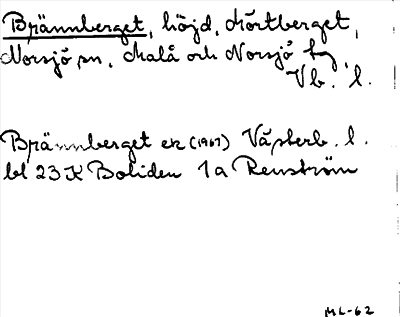 Brännberget, höjd, Mörtberget,
Norsjö sn, Malå och Norsjö tg,
Vb. l.
Brännberget ek (1967) Västerb. l.
bl 23 K Boliden 1a Renström
ML-62